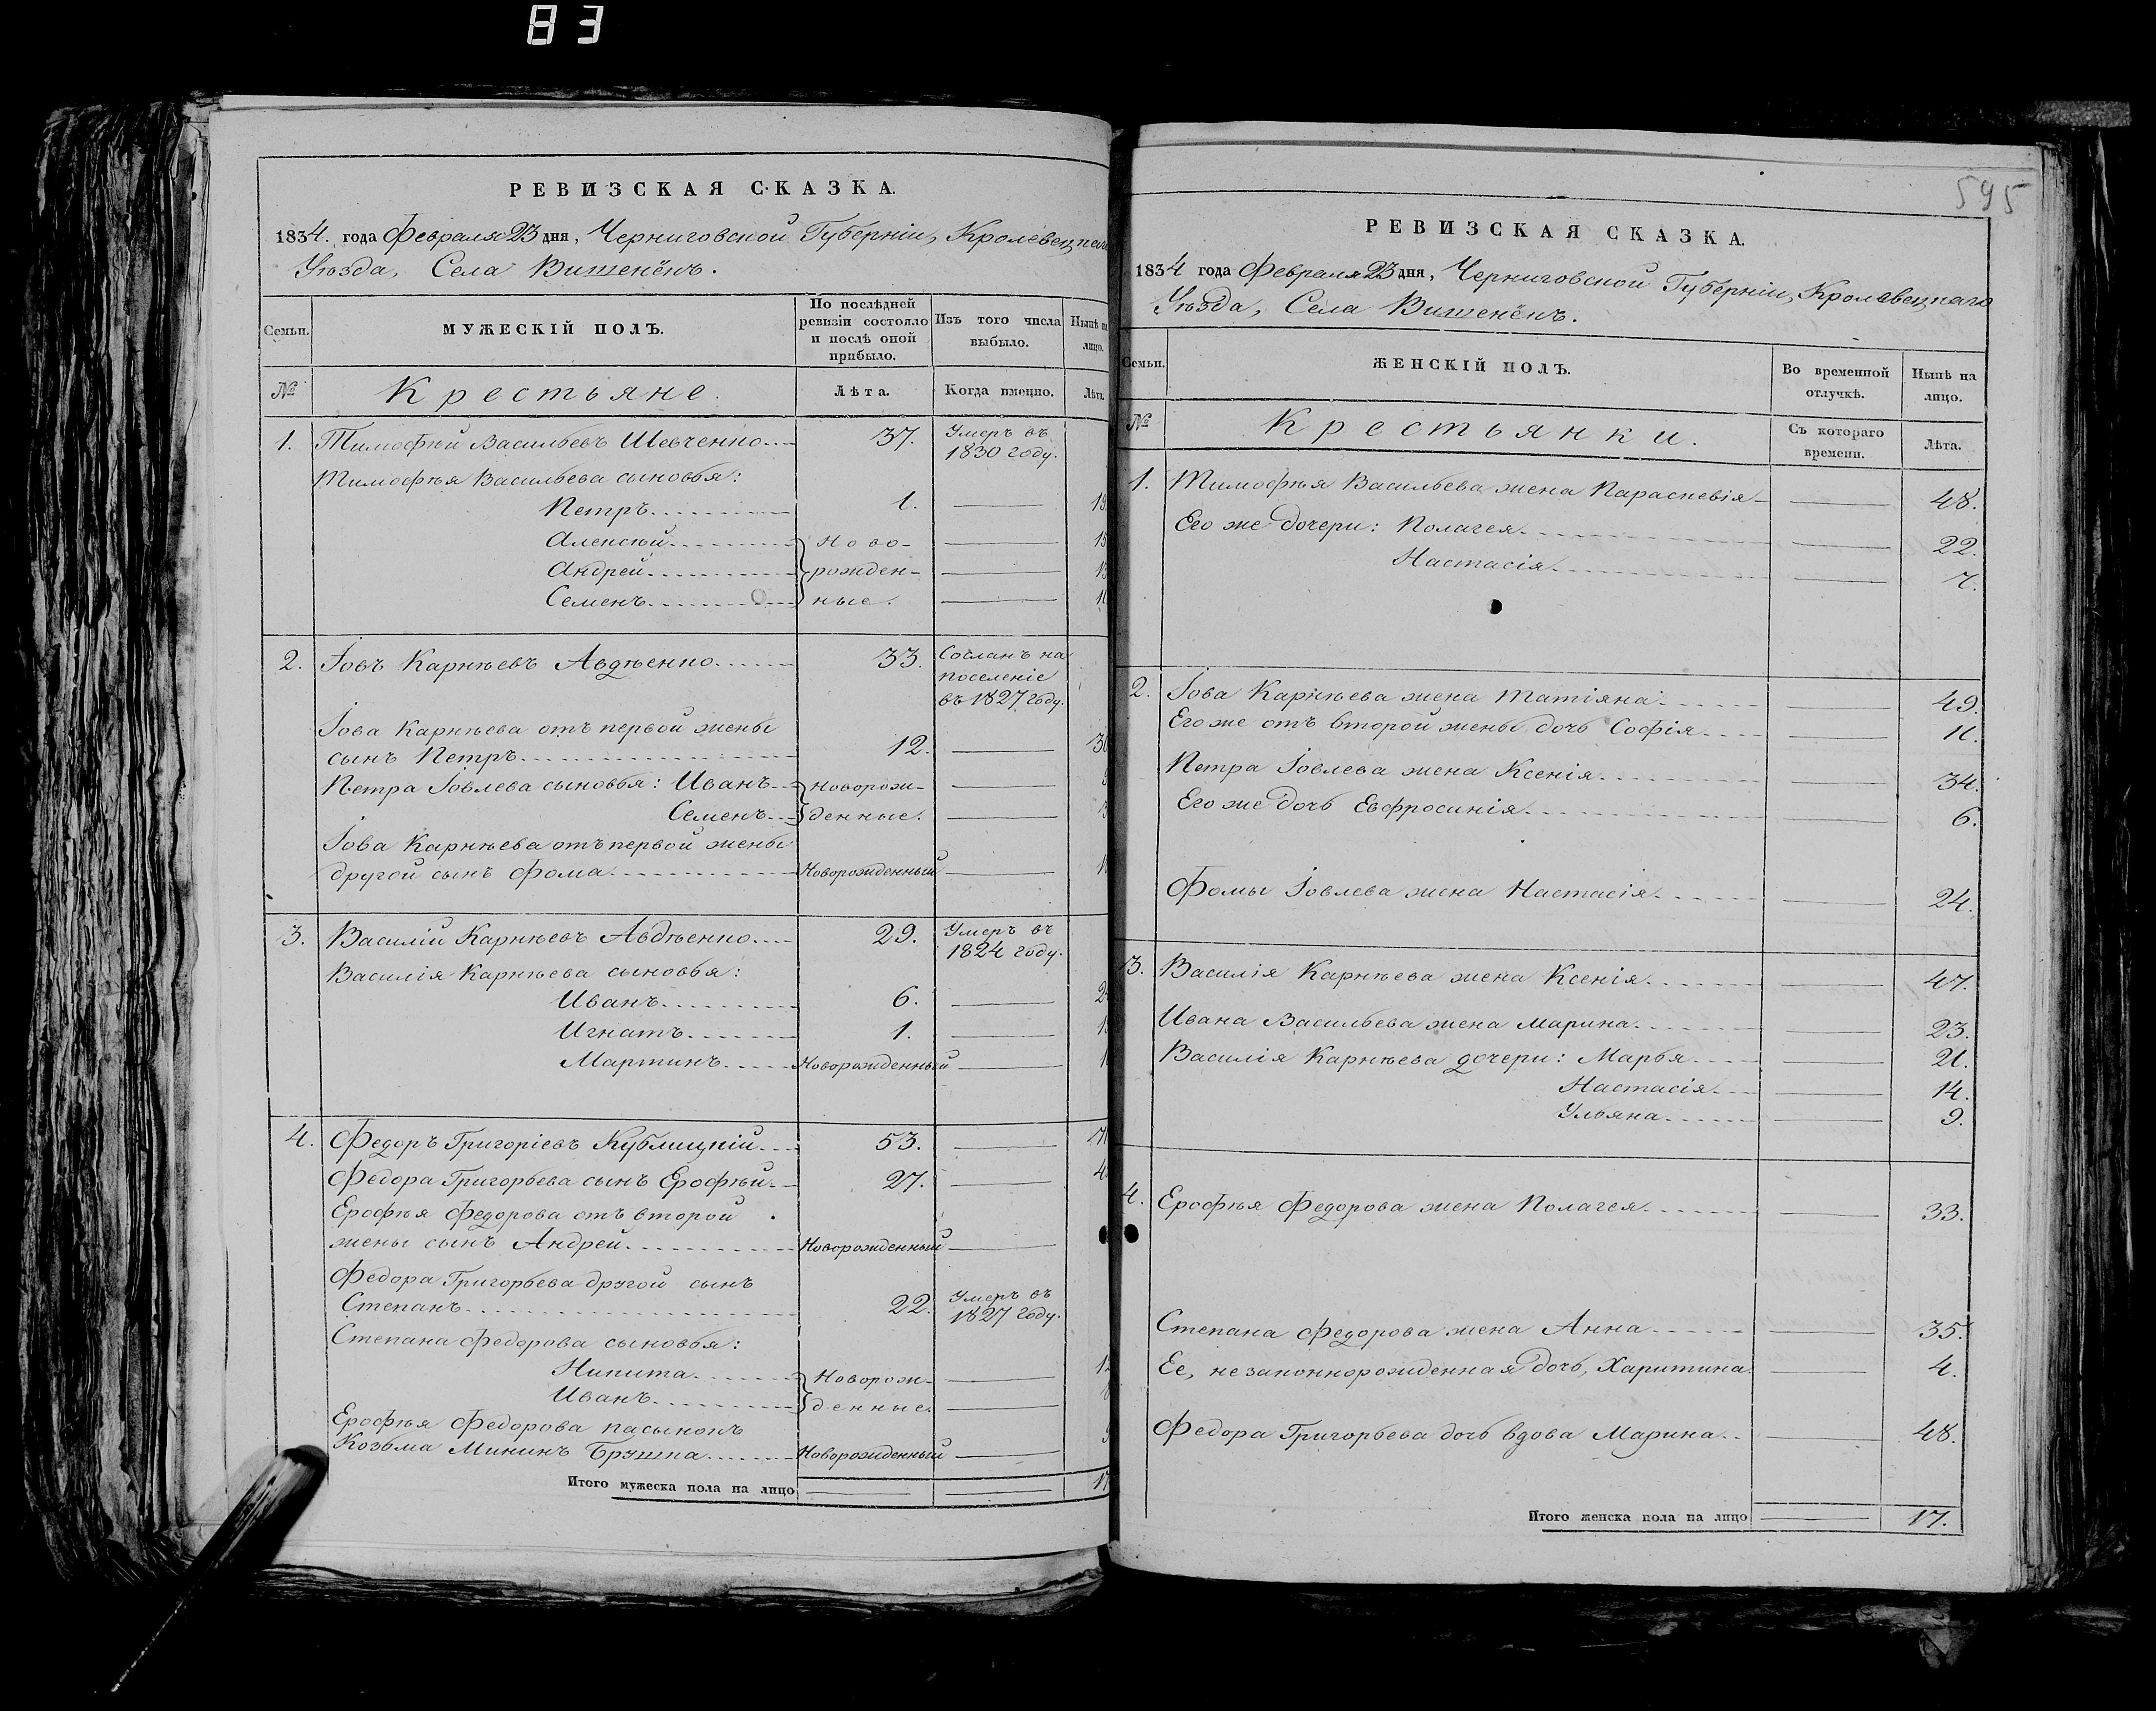 83
РЕВИЗСКАЯ СКАЗКА.
1834. года Февраля 23 дня, Черниговской Губерніи, Кролевецкаго
Уѣзда, Села Вишенёкъ.
Семьи.
МУЖЕСКІЙ ПОЛЪ.
По послѣдней ревизіи состояло и послѣ оной прибыло.
Изъ того числа выбыло.
Нынѣ на лицо.
№
Крестьяне.
Лѣта.
Когда имянно.
Лѣта.
1. Тимофѣй Васильевъ Шевченко 37. Умеръ въ 1830 году.
Тимофѣя Васильева сыновья:
Петръ 1. 19.
Алексѣй Ново- 15
Андрей рожден- 13
Семенъ ные.
2. Іовъ Карнѣевъ Авдѣенко 33. Сосланъ на поселеніе въ 1827 году.
Іова Карнѣева отъ первой жены
сынъ Петръ 12. 30
Петра Іовлева сыновья: Иванъ Новорож-
Семенъ денные.
Іова Карнѣева отъ первой жены
другой сынъ Фома Новорожденный
3. Василій Карнѣевъ Авдѣенко 29. Умеръ въ 1824 году.
Василія Карнѣева сыновья:
Иванъ 6.
Игнатъ 1.
Мартинъ Новорожденный
4. Федоръ Григоріевъ Кублицкій 53. 71
Федора Григорьева сынъ Ерофѣй 27.
Ерофѣя Федорова отъ второй
жены сынъ Андрей Новорожденный
Федора Григорьева другой сынъ
Степанъ 22. Умеръ въ 1827 году.
Степана Федорова сыновья:
Никита Новорож-
Иванъ денные.
Ерофѣя Федорова пасынокъ
Козьма Мининъ Брушка Новорожденный
Итого мужеска пола на лицо 17
595
РЕВИЗСКАЯ СКАЗКА.
1834 года Февраля 23 дня, Черниговской Губерніи, Кролевецкаго
Уѣзда, Села Вишенёкъ.
Семьи.
ЖЕНСКІЙ ПОЛЪ.
Во временной отлучкѣ.
Нынѣ на лицо.
№
Крестьянки.
Съ котораго времени.
Лѣта.
1. Тимофѣя Васильева жена Параскевія 48.
Его же дочери: Полагея 22.
Настасія 7.
2. Іова Карнѣева жена Татіяна 49.
Его же отъ второй жены дочь Софія 11.
Петра Іовлева жена Ксенія 34.
Его же дочь Евфросинія 6.
Фомы Іовлева жена Настасія 24.
3. Василія Карнѣева жена Ксенія 47.
Ивана Васильева жена Марина 23.
Василія Карнѣева дочери: Марья 21.
Настасія 14.
Ульяна 9.
4. Ерофѣя Федорова жена Полагея 33.
Степана Федорова жена Анна 35.
Ее, незаконнорожденная дочь, Харитина 4.
Федора Григорьева дочь вдова Марина 48.
Итого женска пола на лицо 17.